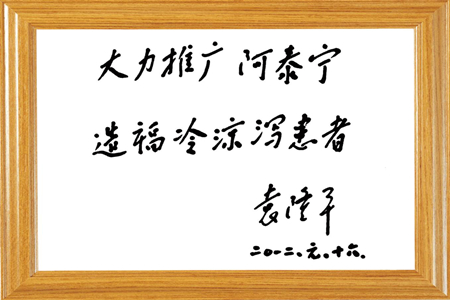 大力推广阿泰宁
造福冷凉泻患者
袁隆平
二〇一二、元、十六.